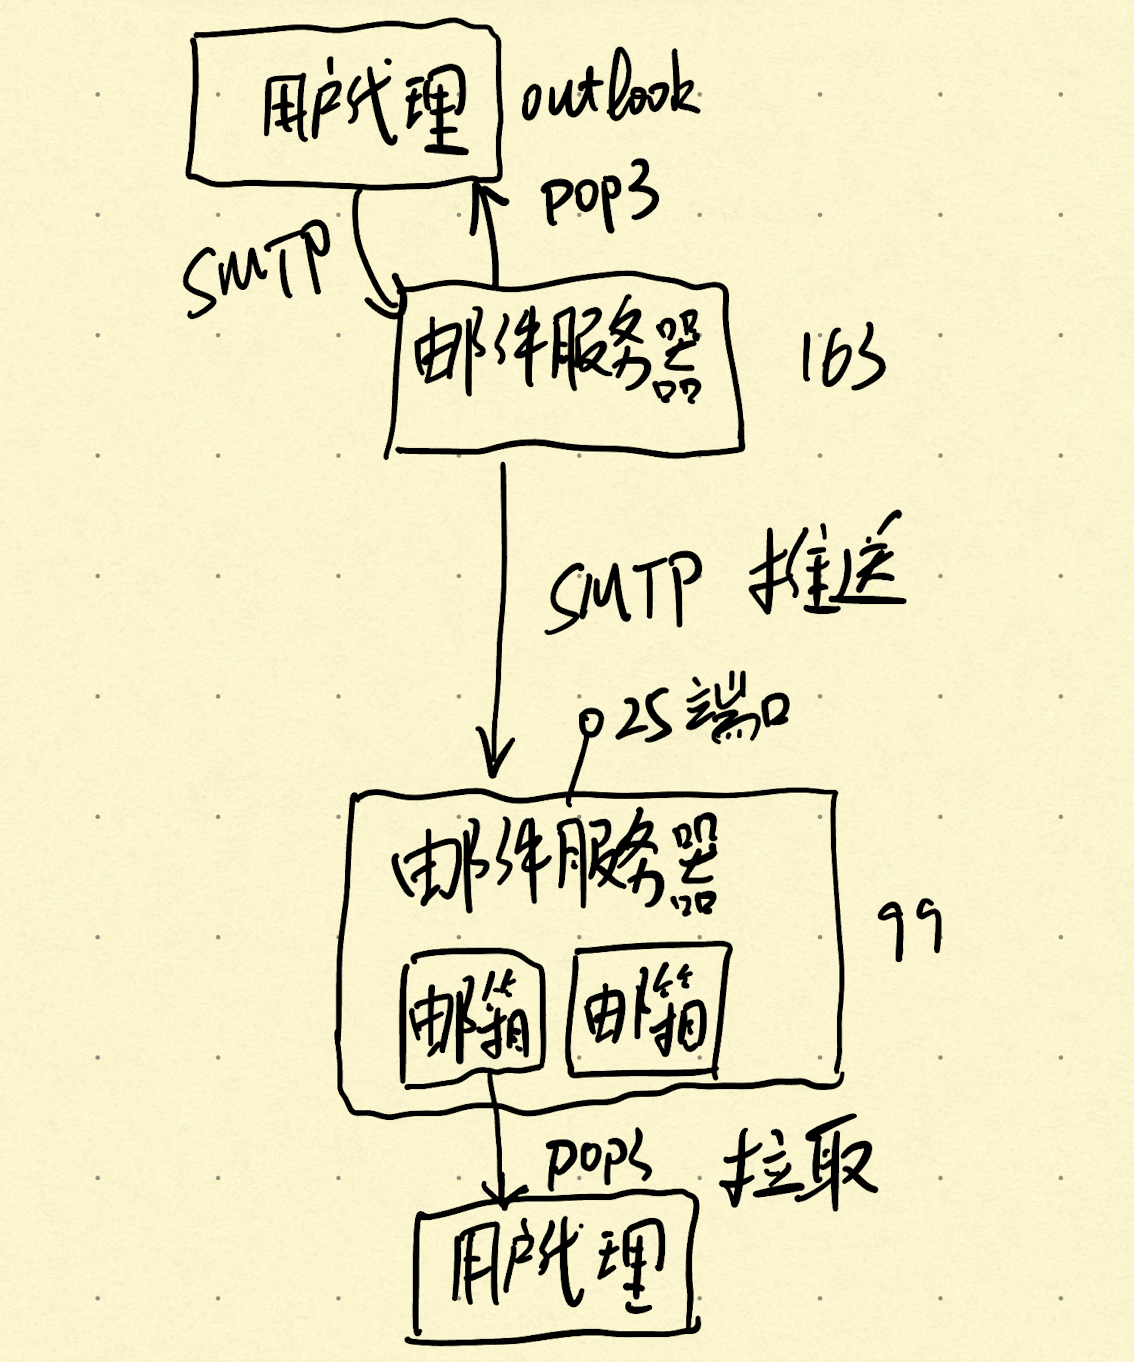 用户代理 outlook
pop3
SMTP
邮件服务器 163
SMTP 推送
25端口
邮件服务器
99
邮箱 邮箱
pop3 拉取
用户代理